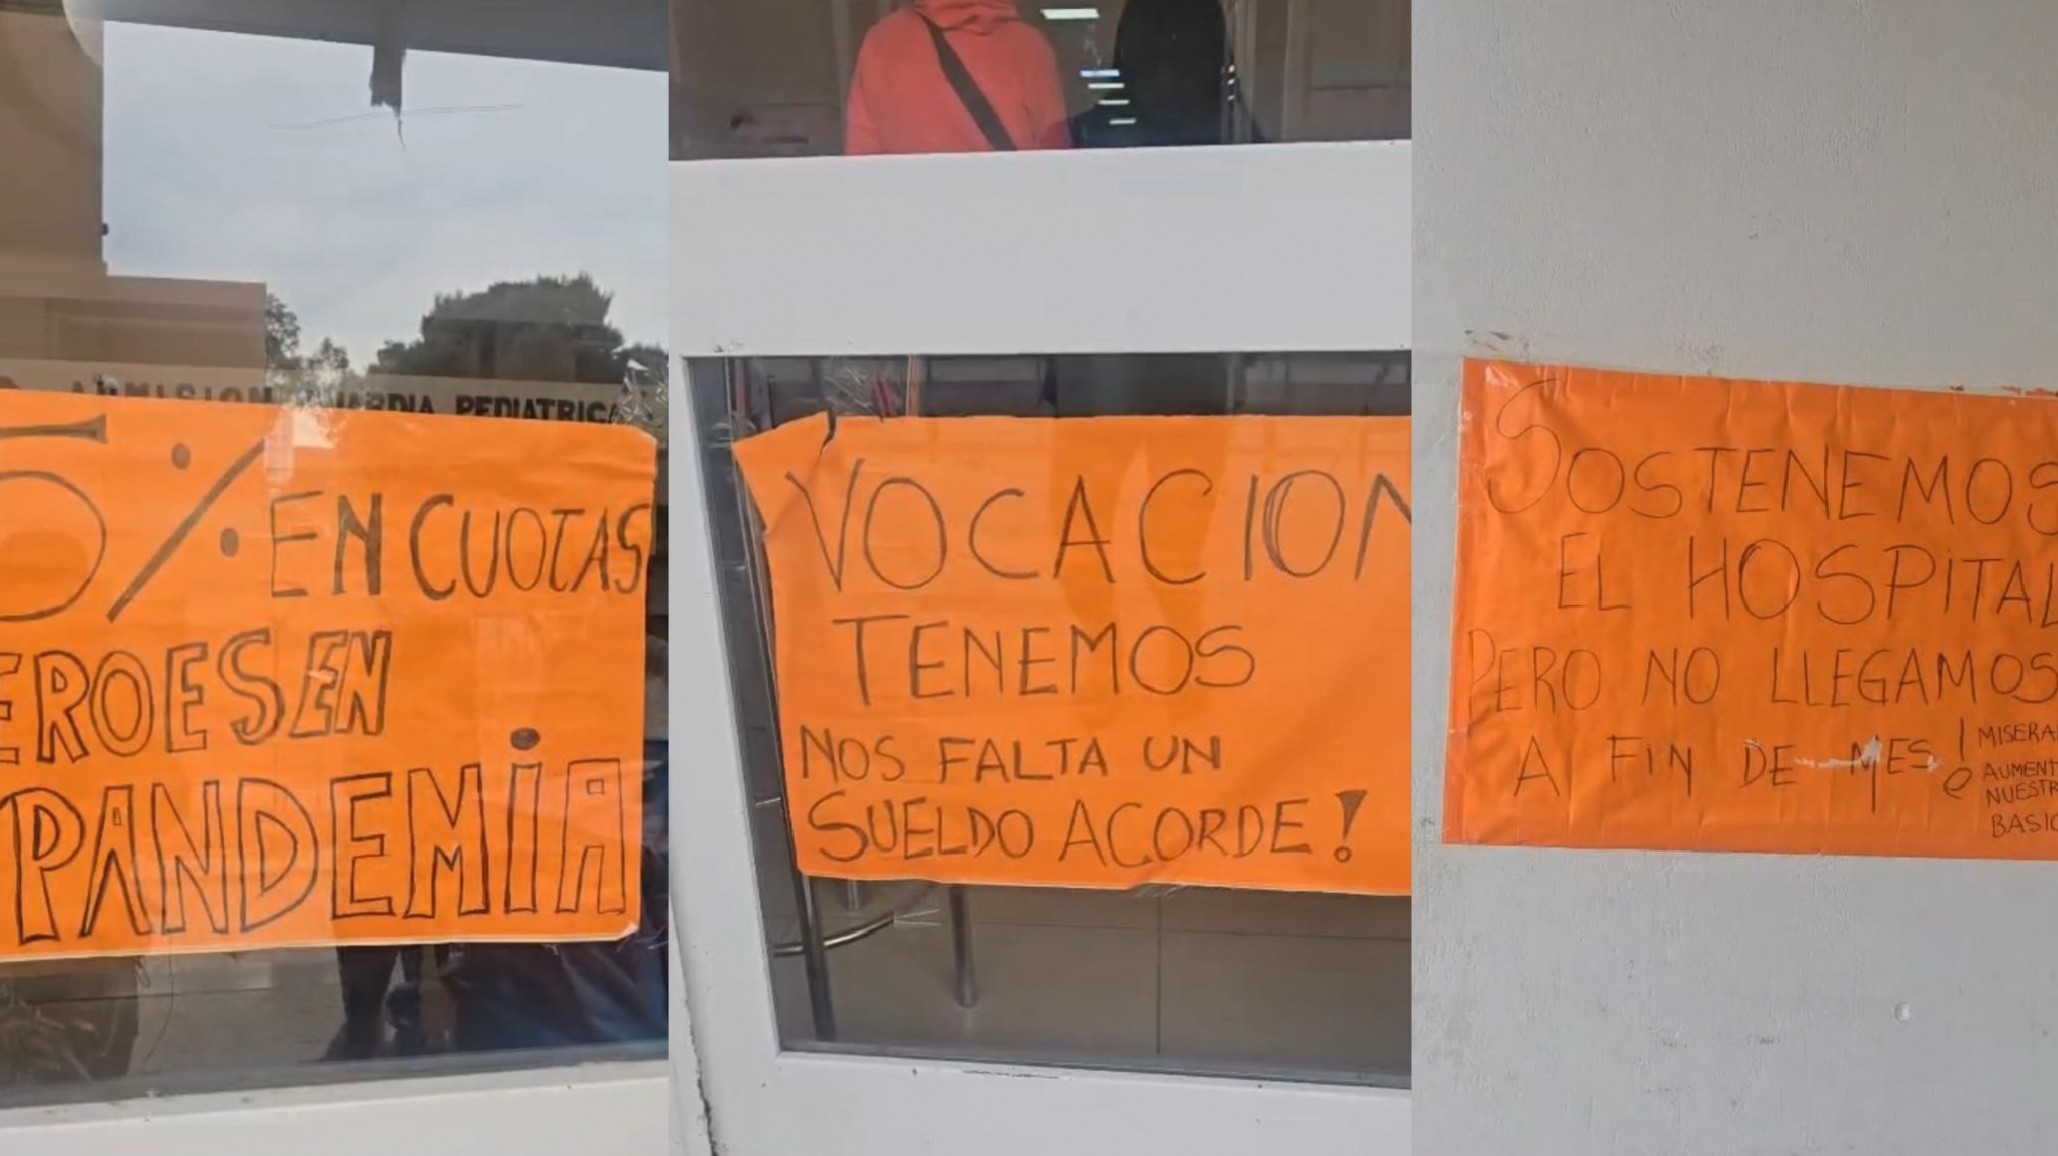 ADMISION GUARDIA PEDIATRICA
5% EN CUOTAS
EROES EN
PANDEMIA
VOCACION
TENEMOS
NOS FALTA UN
SUELDO ACORDE!
SOSTENEMOS
EL HOSPITAL
PERO NO LLEGAMOS
A FIN DE MES!
MISERA
AUMENT
NUESTR
BASIC